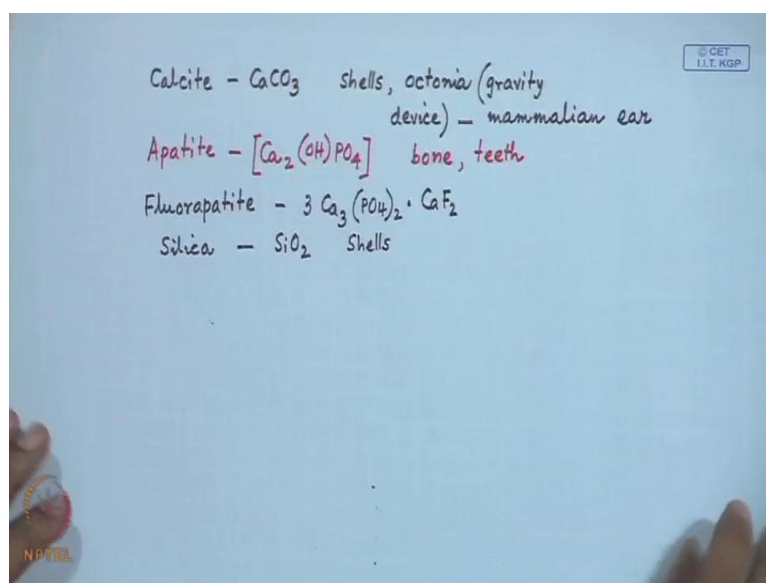 © CET
I.I.T. KGP
Calcite – CaCO3 shells, octonia (gravity
device) – mammalian ear
Apatite – [Ca2(OH)PO4] bone, teeth
Fluorapatite – 3 Ca3(PO4)2 · CaF2
Silica – SiO2 Shells
NPTEL